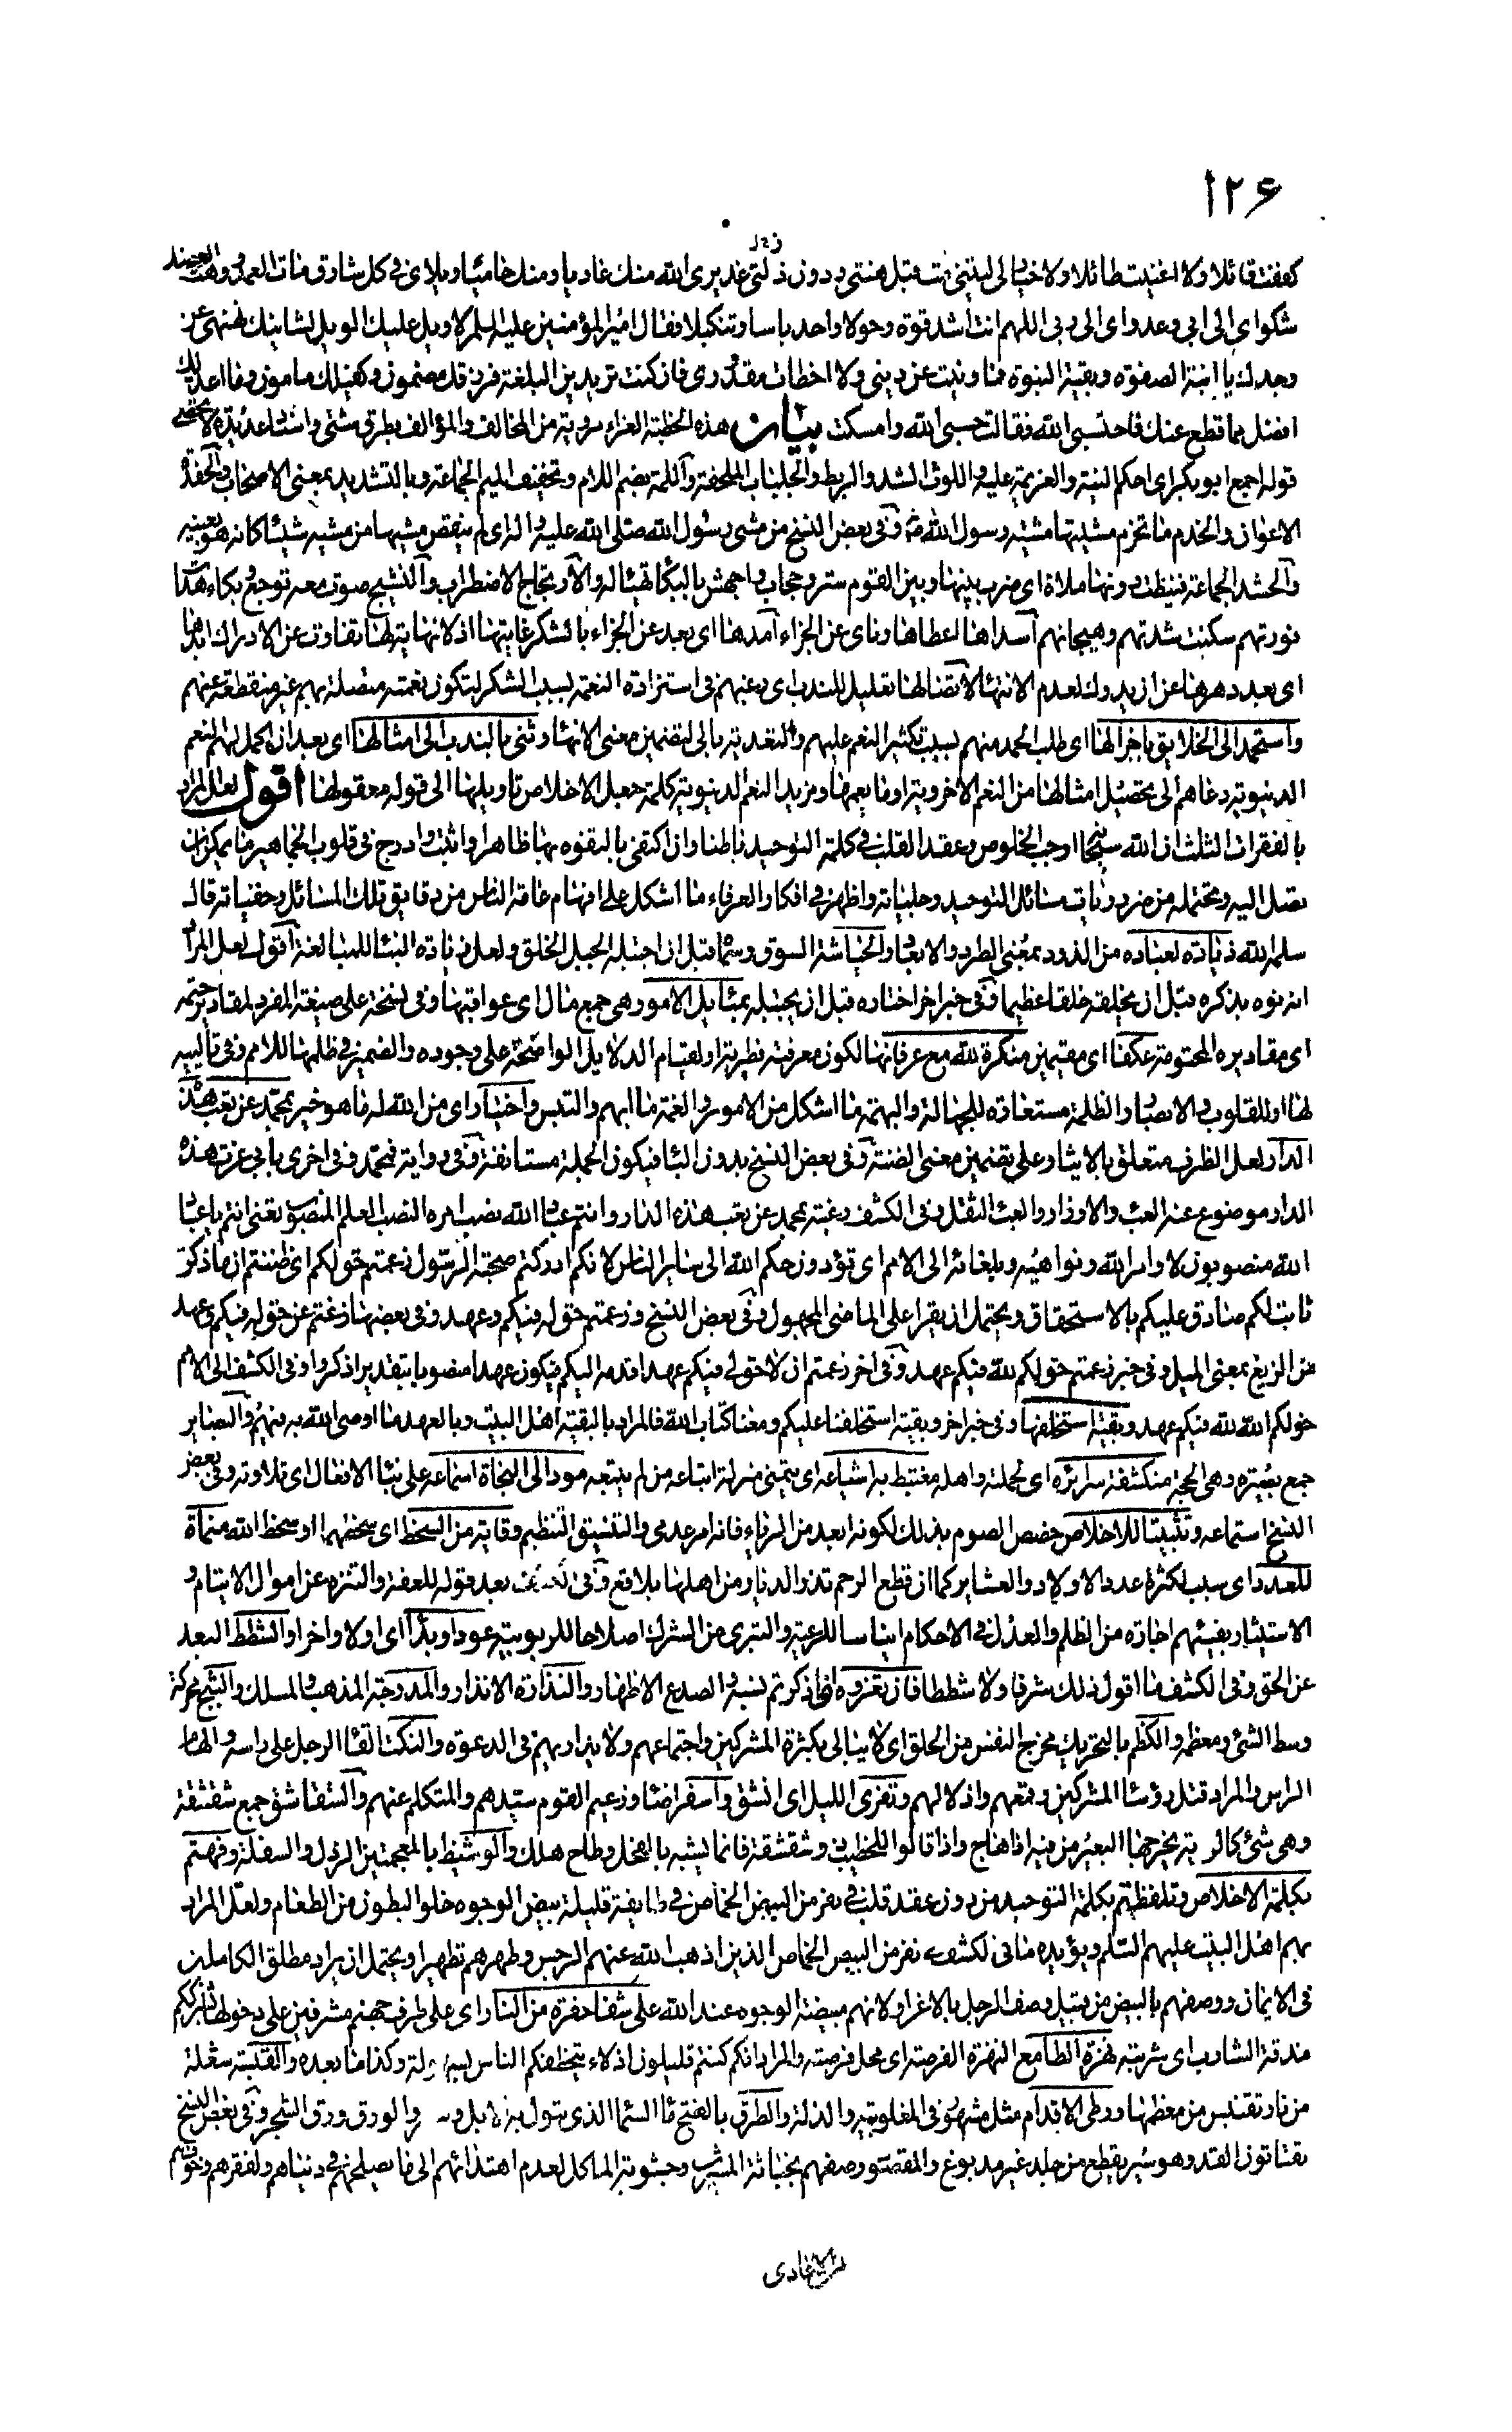 ١٢۶
كففت قائلا ولا اغنيت طائلا ولا خيار لي ليتني مت قبل هنتي ودون ذلتي عذيري الله منك عاديا ومنك حاميا ويلاي في كل شارق مات العمد ووهت العضد
شكواي الى ابي وعدواي الى ربي اللهم انت اشد قوة وحولا واحد باسا وتنكيلا فقال امير المؤمنين عليه السلم لا ويل عليك الويل لشانئك نهنهي عن
وجدك يا ابنة الصفوة وبقية النبوة فما ونيت عن ديني ولا اخطات مقدوري فان كنت تريدين البلغة فرزقك مضمون وكفيلك مامون وما اعد لك
افضل مما قطع عنك فاحتسبي الله فقالت حسبي الله وامسكت بيان هذه الخطبة الغراء مروية من المخالف والمؤالف بطرق شتى واسانيد
قوله اجمع ابو بكر اي احكم النية والعزيمة عليه واللوث الشد والربط والجلباب الملحفة واللمة بضم اللام وتخفيف الميم الجماعة وبالتشديد بمعنى الاصحاب والحفدة
الاعوان والخدم ما تخرم مشيتها مشية رسول الله ص وفي بعض النسخ من مشي رسول الله صلى الله عليه واله اي لم ينقص مشيها من مشيه شيئا كانه هو بعينه
والحشد الجماعة فنيطت دونها ملاة اي ضرب بينها وبين القوم ستر وحجاب واجهش بالبكا تهيا له والارتجاج الاضطراب والنشيج صوت معه توجع وبكاء هدات
فورتهم سكنت شدتهم وهيجانهم اسداها اعطاها وناى عن الجزاء امدها اي بعد عن الجزاء بالشكر غايتها اذ لا نهاية لها تفاوت عن الادراك ابدها
اي بعد دهرها عن ان يدرك لعدم الانتهاء لاتصالها تعليل للندب اي رغبهم في استزادة النعمة بسبب الشكر لتكون نعمته متصلة بهم غير منقطعة عنهم
واستحمد الى الخلايق باجزالها اي طلب الحمد منهم بسبب تكثير النعم عليهم والتعدية بالى لتضمين معنى الانهاء وثنى بالندب الى امثالها اي بعد ان اكمل لهم النعم
الدنيوية دعاهم الى تحصيل امثالها من النعم الاخروية او ما يعمها ومزيد النعم الدنيوية كلمة جعل الاخلاص تاويلها الى قوله معقولها اقول لعل المراد
بالفقرات الثلث ان الله سبحانه اوجب الخلوص وعقد القلب في كلمة التوحيد باطنا وان اكتفى بالتفوه بها ظاهرا واثبت وادرج في قلوب الجماهير ما يمكنهم ان
تصل اليه وتحتمله من ضروريات مسائل التوحيد وجلياته واظهر في افكار العرفاء ما اشكل على افهام عامة الناس من دقايق تلك المسائل وخفياته قاله
سلمه الله ذيادة لعباده من الذود بمعنى الطرد والابعاد والحياشة السوق وسماه قبل ان اجتبله الجبل الخلق ولعل زيادة البناء للمبالغة اقول لعل المراد
انه نوه بذكره قبل ان يخلقه خلقا عظيما وفي خبر اخر اختاره قبل ان يجتبله بمئايل الامور هي جمع مال اي عواقبها وفي نسخة على صيغة المفرد لمقادير حتمه
اي مقاديره المحتومة عكفا اي مقيمين منكرة لله مع عرفانها لكون معرفته نظرية او لقيام الدلايل الواضحة على وجوده والضمير في ظلمها للامم وفي تاليه
لها او للقلوب والابصار والظلمة مستعارة للجهالة والبهمة ما اشكل من الامور والغمة ما ابهم والتبس واختيار اي من الله له ما هو خير بمحمد عن تعب هذه
الدار لعل الظرف متعلق بالايثار على تضمين معنى الضنة وفي بعض النسخ بدون الباء فيكون الجملة مستانفة وفي رواية فمحمد وفي اخرى بابي عزت هذه
الدار موضوع عنه العبء والاوزار والعبء الثقل وفي الكشف رغبة بمحمد عن تعب هذه الدار وانتم عباد الله نصب امره النصب العلم المنصوب يعني انتم يا عباد
الله منصوبون لاوامر الله ونواهيه وبلغائه الى الامم اي تؤدون حكم الله الى ساير الناس لانكم ادركتم صحبة الرسول زعمتم حق لكم اي ظننتم ان ما ذكر
ثابت لكم صادق عليكم بالاستحقاق ويحتمل ان يقرا على الماضي المجهول وفي بعض النسخ وزعمتم حق له فيكم وعهد وفي بعضها زغتم عن حق له فيكم وعهد
من الزيغ بمعنى الميل وفي خبر زعمتم حق لكم لله فيكم عهد وفي اخر زعمتم ان لا حق لي فيكم عهدا قدمه اليكم فيكون عهدا منصوبا بتقدير اذكروا وفي الكشف الى الامم
حولكم الله لله فيكم عهد وبقية استخلفها وفي خبر اخر وبقية استخلفنا عليكم ومعنا كتاب الله فالمراد بالبقية اهل البيت وبالعهد ما اوصى الله به فيهم والبصاير
جمع بصيرة وهي الحجة منكشفة سرايره اي لحملته واهله مغتبط به اشياعه اي يتمنى منزلة اتباعه من لم يتبعه مود الى النجاة اسماعه على بناء الافعال اي تلاوته وفي بعض
النسخ استماعه وتثبيتا للاخلاص خصص الصوم بذلك لكونه ابعد من الرياء فانه امر عدمي والتنسيق التنظيم وقاية من السخط اي سخطهما او سخط الله منماة
للعدد اي سبب لكثرة عدد الاولاد والعشاير كما ان قطع الرحم تذر الديار من اهلها بلاقع وفي الكشف بعد قوله للعفة والتنزه عن اموال الايتام و
الاستيثار بفيئهم اجارة من الظلم والعدل في الاحكام ايناسا للرعية والتبري من الشرك اصلاحا للربوبية عودا وبدأ اي اولا واخرا والشطط البعد
عن الحق وفي الكشف ما اقول ذلك سرفا ولا شططا فان تعزوه اي ان ذكرتم نسبه والصدع الاظهار والنذارة الانذار والمدرجة المذهب والمسلك والثبج بالتحريك
وسط الشئ ومعظمه والكظم بالتحريك مخرج النفس من الحلق اي لا يبالي بكثرة المشركين واجتماعهم ولا يداريهم في الدعوة والنكت القاء الرجل على راسه والهام
الراس والمراد قتل رؤساء المشركين وقمعهم واذلالهم وتفرى الليل اي انشق واسفر اضاء وزعيم القوم سيدهم والمتكلم عنهم والشقاشق جمع شقشقة
وهي شئ كالرية يخرجها البعير من فيه اذا هاج واذا قالوا للخطيب ذو شقشقة فانما يشبه بالفحل وطاح هلك والوشيظ بالمعجمتين الرذل والسفلة وفهتم
بكلمة الاخلاص وتلفظتم بكلمة التوحيد من دون عقد قلب في نفر من البيض الخماص في طايفة قليلة بيض الوجوه خلو البطون من الطعام ولعل المراد
بهم اهل البيت عليهم السلم ويؤيده ما في الكشف نفر من البيض الخماص الذين اذهب الله عنهم الرجس وطهرهم تطهيرا ويحتمل ان يراد مطلق الكاملين
في الايمان ووصفهم بالبيض من قبيل وصف الرجل بالاغر او لانهم مبيضة الوجوه عند الله على شفا حفرة من النار اي على طرف جهنم مشرفين على دخولها لشرككم
مذقة الشارب اي شربته نهزة الطامع النهزة الفرصة اي محل فرصته والمراد انكم كنتم قليلون اذلاء يتخطفكم الناس بسهولة وكذا ما بعده والقبسة شعلة
من نار تقتبس من معظمها ووطى الاقدام مثل مشهور في المغلوبية والذلة والطرق بالفتح ماء السماء الذي تبول به الابل و والورق ورق الشجر وفي بعض النسخ
تقتاتون القد وهو سير يقطع من جلد غير مدبوغ والمقصود وصفهم بخباثة المشرب وجشوبة الماكل لعدم اهتدائهم الى ما يصلحهم في دنياهم ولفقرهم وخوفهم
من الاعادي